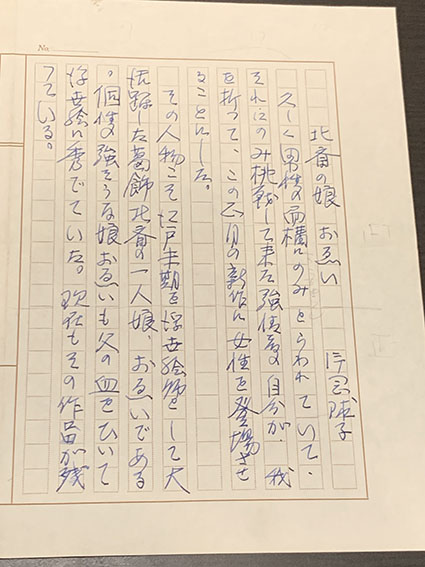 No.
北斎の娘 おゑい 片岡球子
久しく男性の面構にのみとらわれていて、
それにのみ挑戦して来た強情な自分が、我
を折って、この正月の新作に女性を登場させ
ることにした。
その人物こそ江戸末期を浮世絵師として大
活躍した葛飾北斎の一人娘、おゑいである
。個性の強そうな娘おゑいも父の血をひいて
浮世絵に秀でていた。現在もその作品が残
っている。